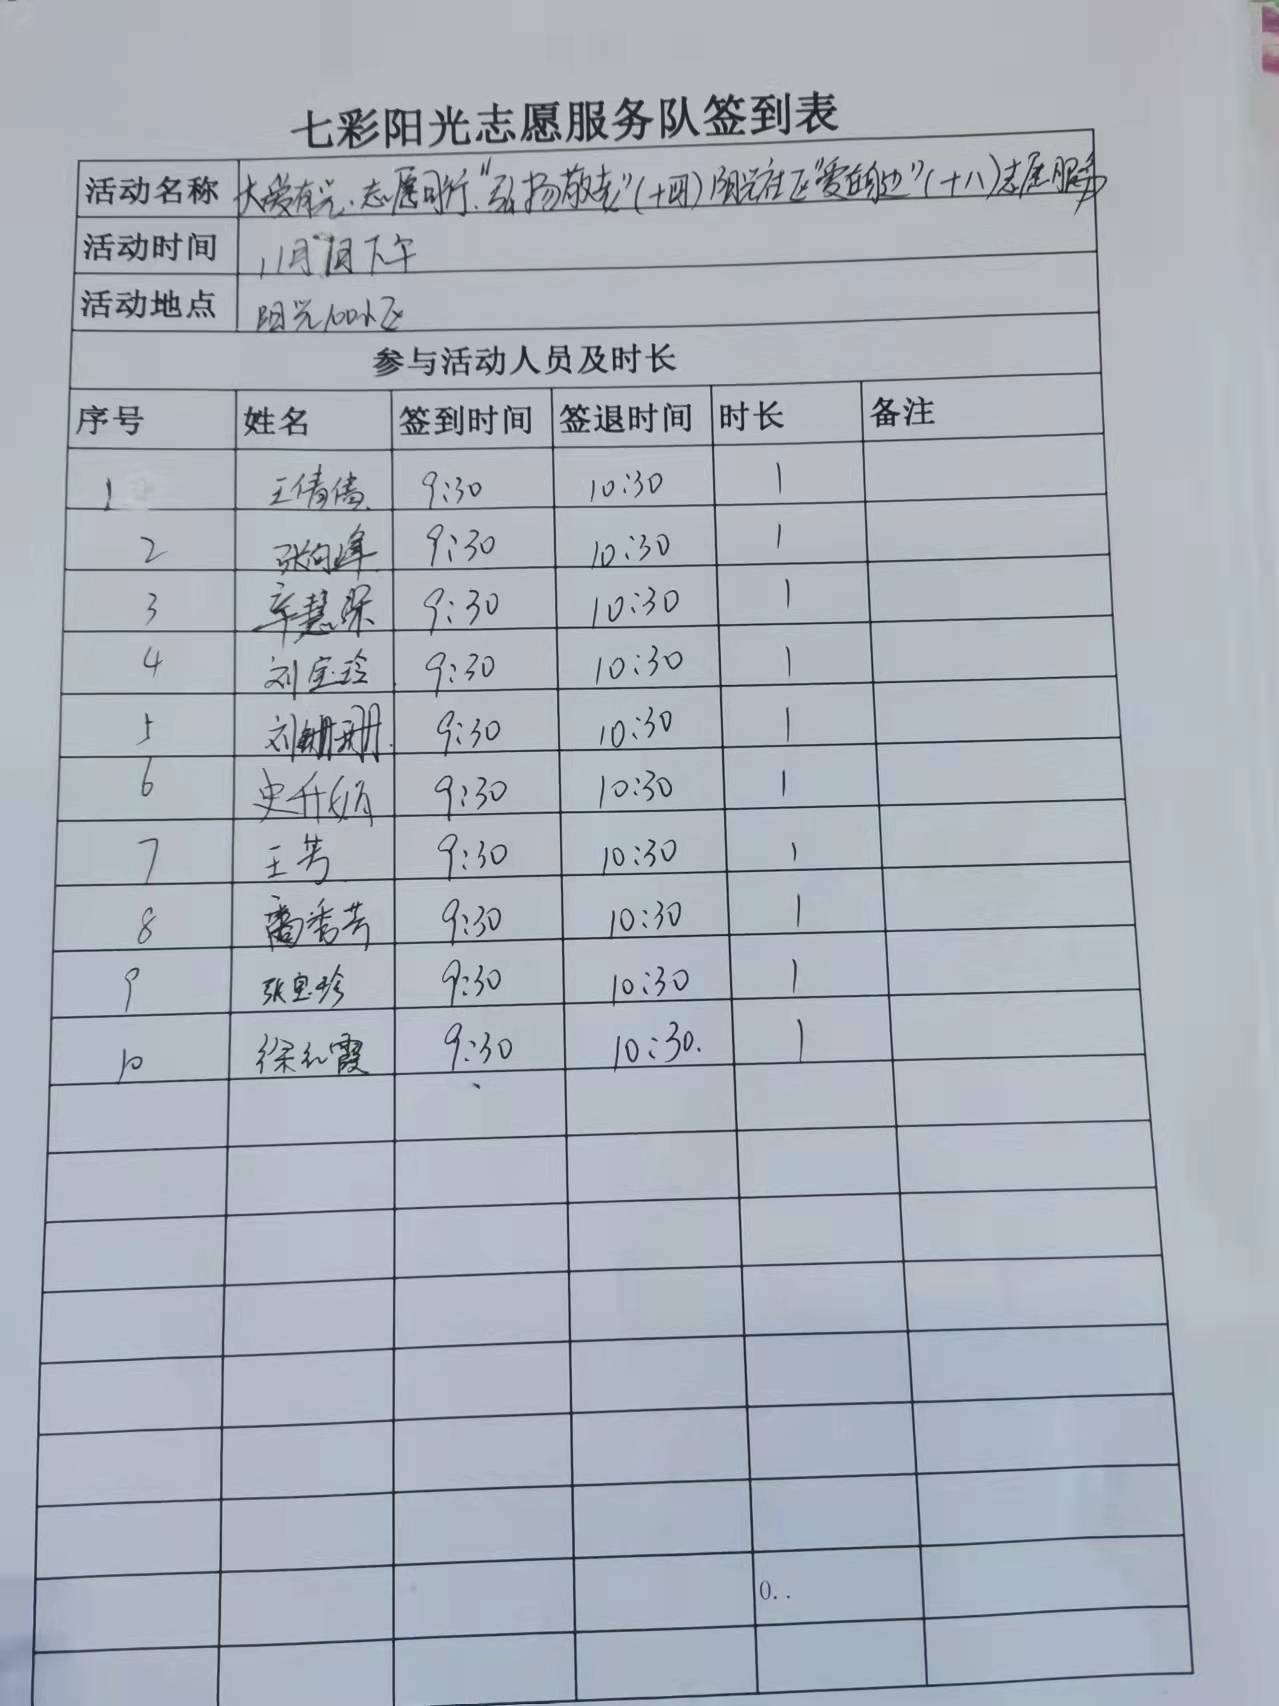 七彩阳光志愿服务队签到表
活动名称 大爱有光·志愿同行."弘扬敬老"(十四)阳光社区"爱在身边"(十八)志愿服务
活动时间 11月7日下午
活动地点 阳光100小区
参与活动人员及时长
序号 姓名 签到时间 签退时间 时长 备注
1 王倩倩 9:30 10:30 1
2 张向峰 9:30 10:30 1
3 辛慧琛 9:30 10:30 1
4 刘宝玲 9:30 10:30 1
5 刘姗珊 9:30 10:30 1
6 史升娟 9:30 10:30 1
7 王芳 9:30 10:30 1
8 秀芳 9:30 10:30 1
9 张宝珍 9:30 10:30 1
10 徐红霞 9:30 10:30. 1
0..